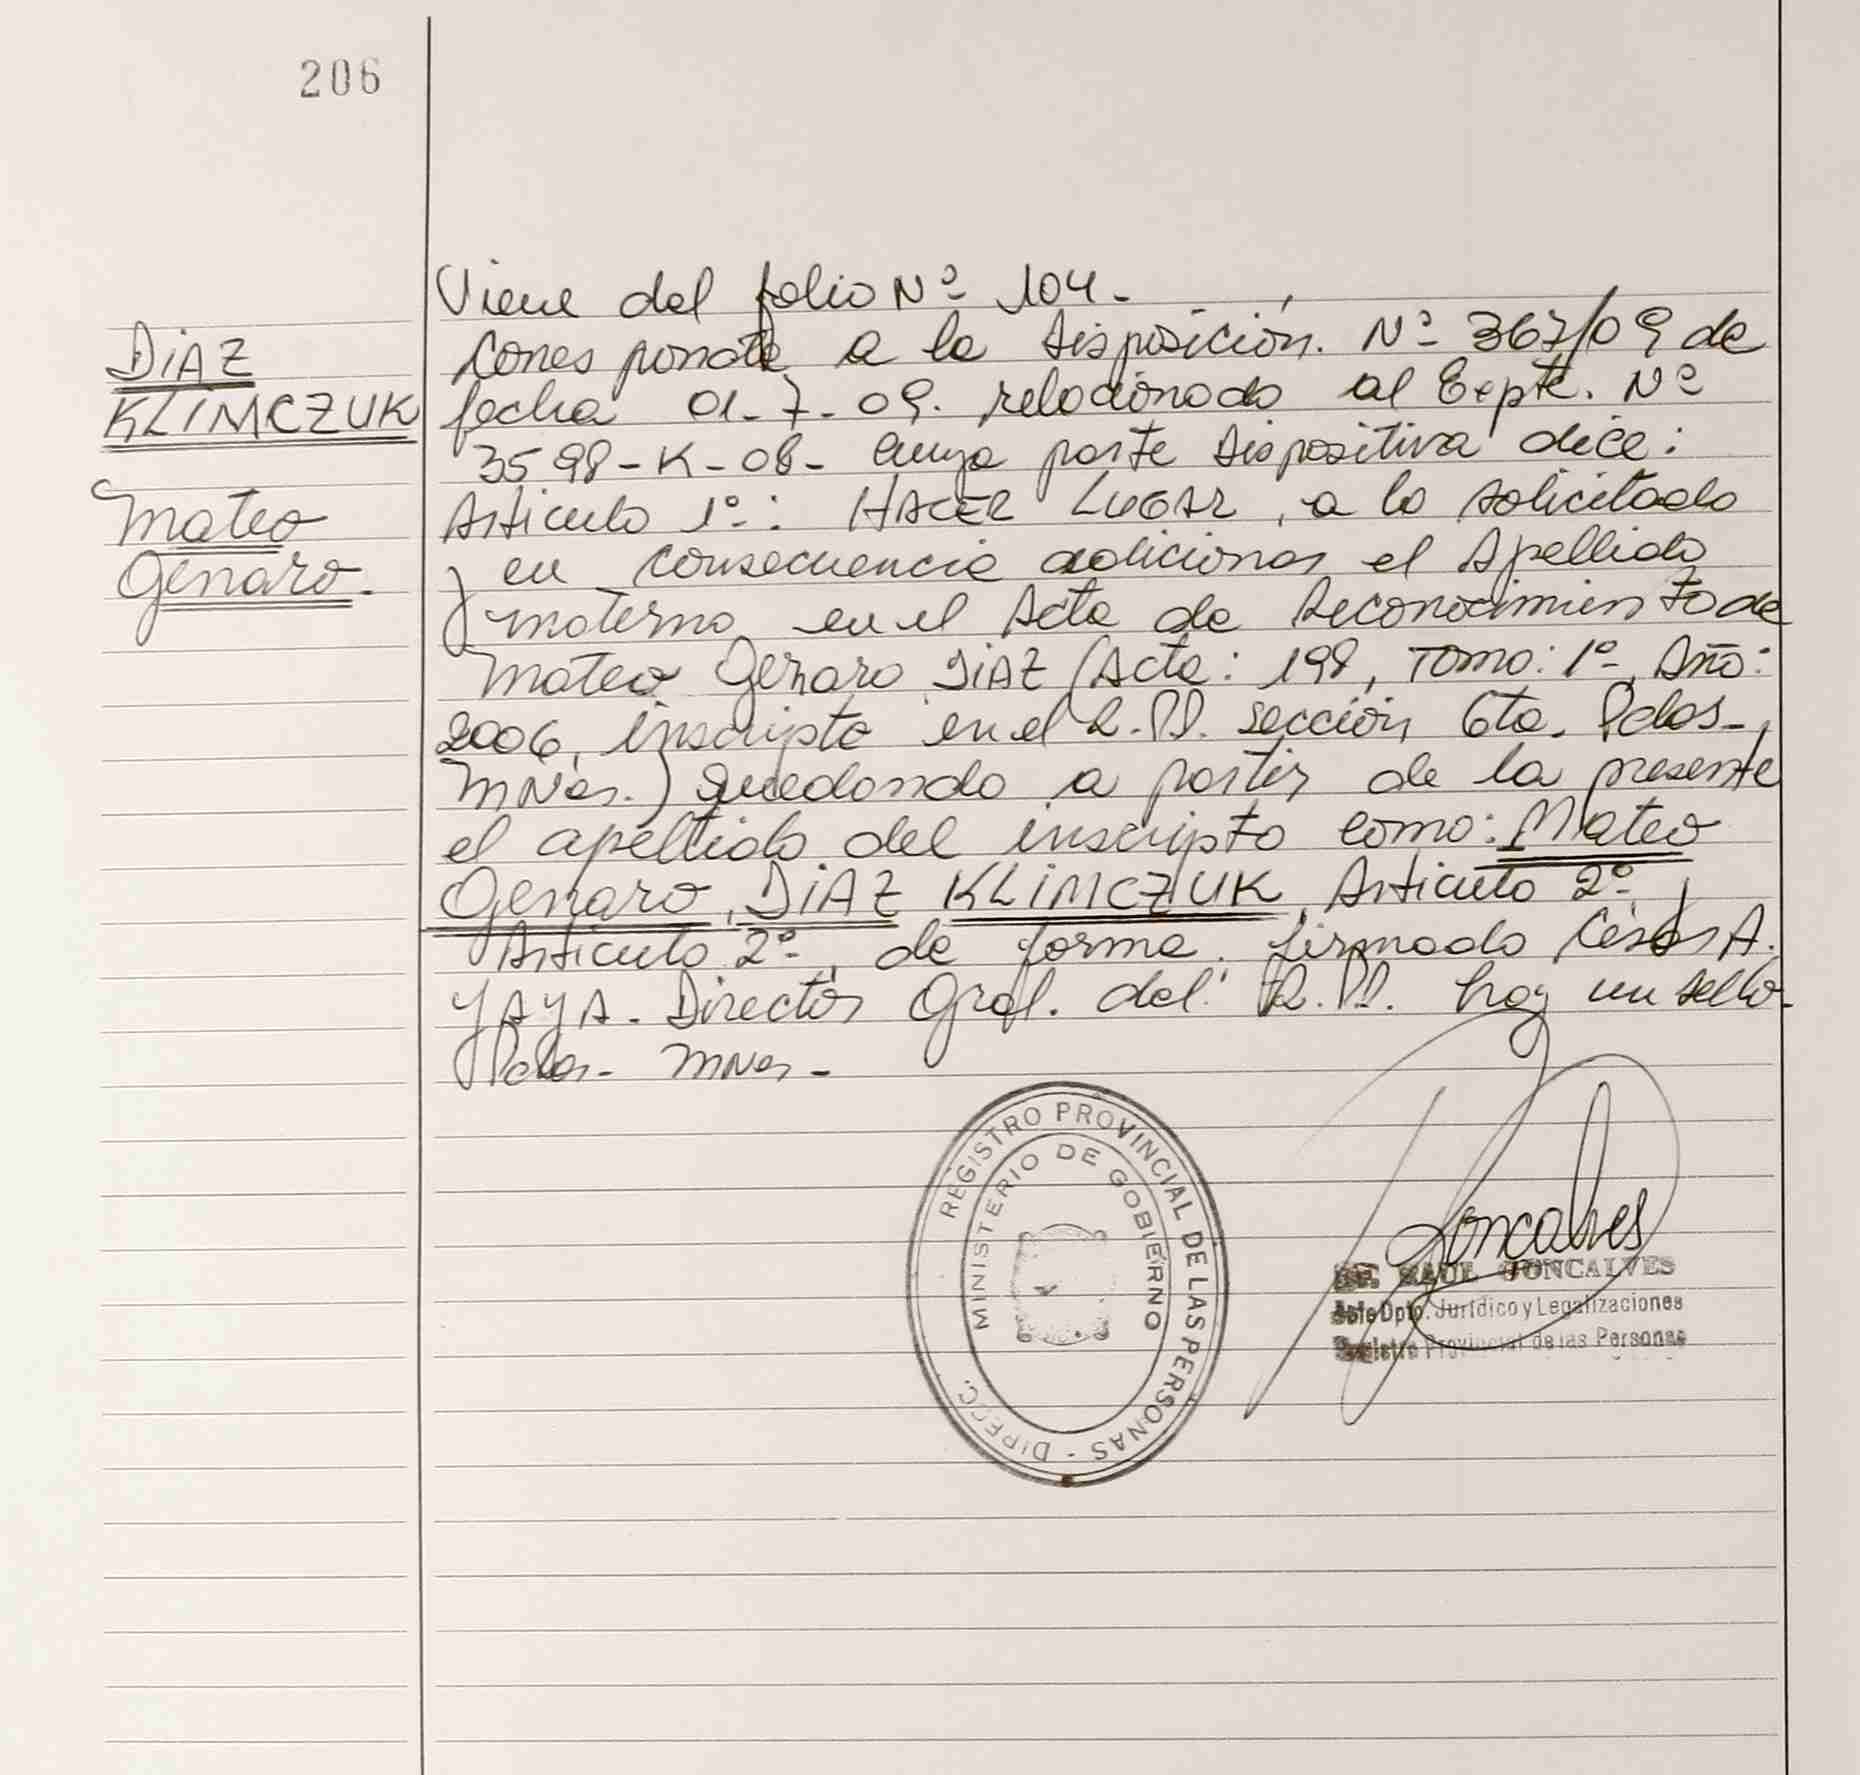 206
Viene del folio Nº 104.
DiAZ
KLIMCZUK
Mateo
Genaro.
Corresponde a la Disposición. Nº 367/09 de
fecha 01-7-09. relacionado al Expte. Nº
3598-K-08- Cuya parte Dispositiva dice:
Articulo 1º: HACER LUGAR, a lo solicitado
y en consecuencia adicionar el Apellido
materno en el Acta de Reconocimiento de
Mateo Genaro DiAZ (Acta: 198, Tomo: 1º, Año:
2006, inscripta en el R.PP. sección 6ta. Pdas-,
MNes.) Quedando a partir de la presente
el apellido del inscripto como: Mateo
Genaro, DiAZ KLiMCZUK, Articulo 2º
Articulo 2º, de forma. firmado César A.
YAYA. Director Gral. del R.PP. hay un sello.
Pdas- MNes-
REGISTRO PROVINCIAL DE LAS PERSONAS - DIPECC.
MINISTERIO DE GOBIERNO
Goncalves
RAUL GONCALVES
Dpto. Jurídico y Legalizaciones
Registro Provincial de las Personas